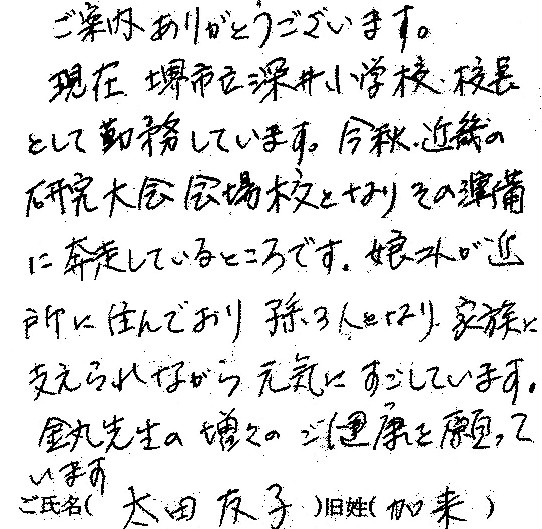 ご案内ありがとうございます。
現在 堺市立深井小学校・校長
として勤務しています。今秋、近畿の
研究大会会場校となりその準備
に奔走しているところです。娘3人が近
所に住んでおり 孫3人となり、家族に
支えられながら元気にすごしています。
金丸先生の増々のご健康を願って
います
ご氏名( 太田 友子 )旧姓( 加来 )